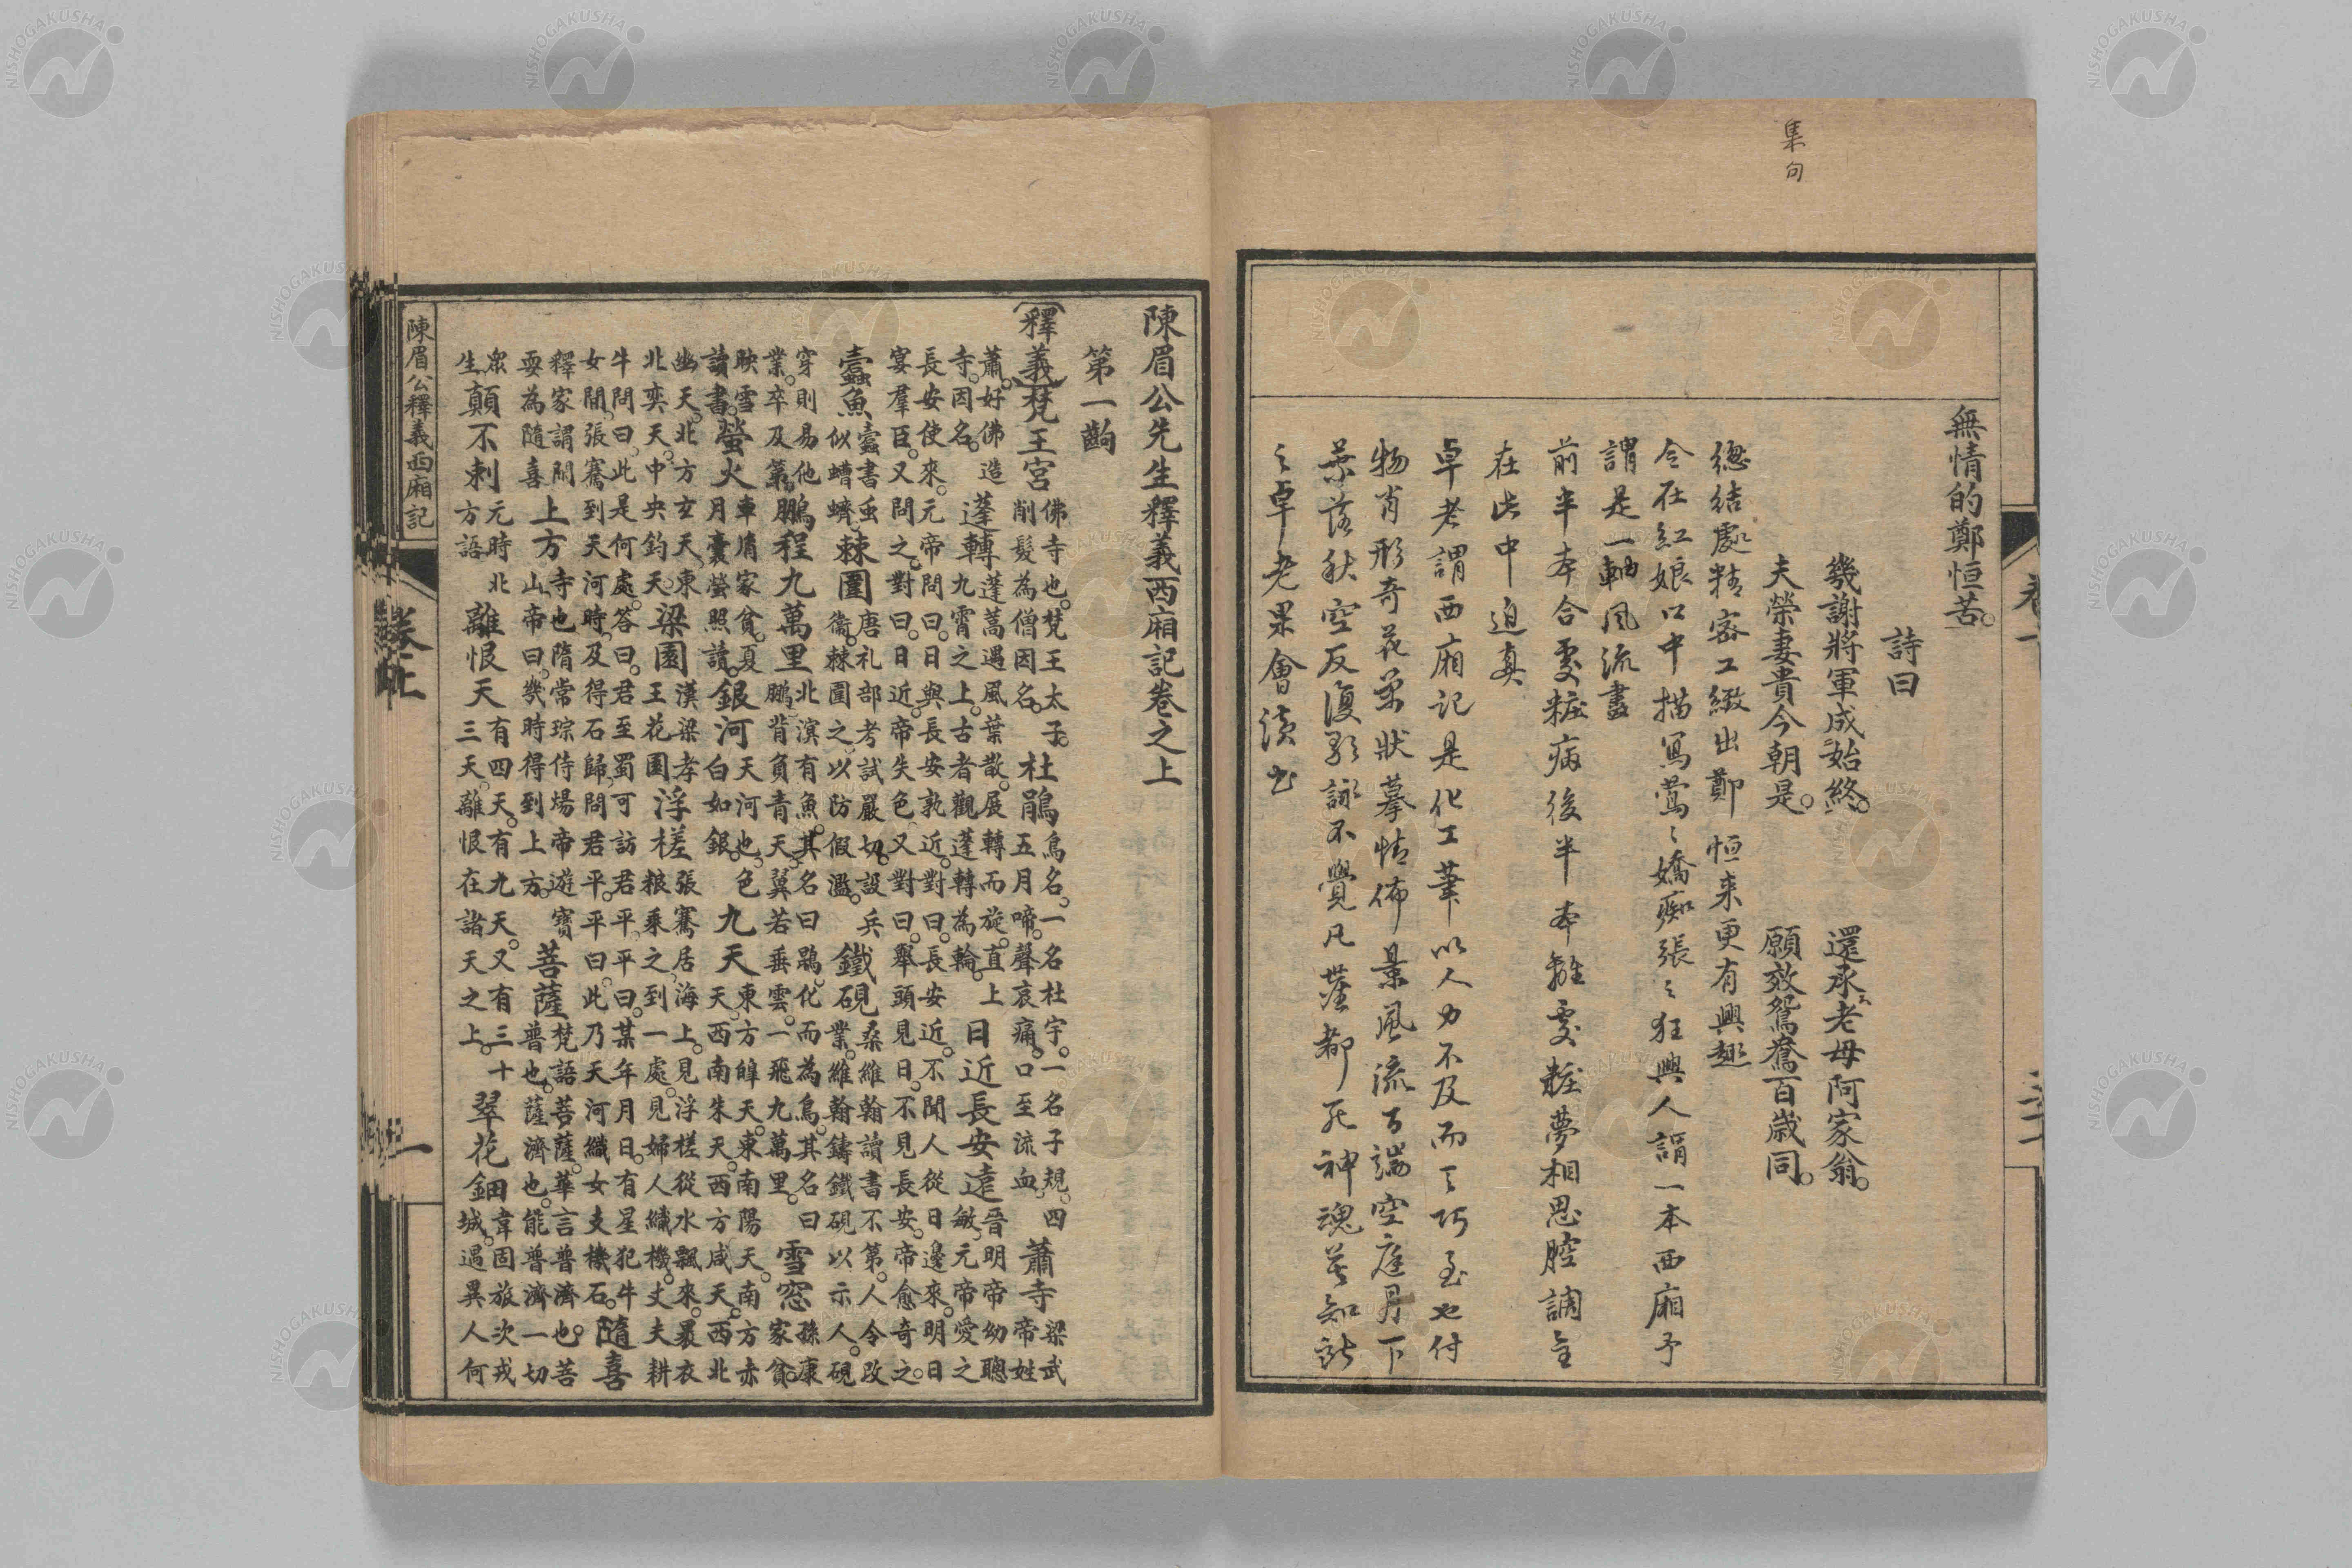 集句
無情的鄭恒苦。
詩曰
幾謝將軍成始終。還承老母阿家翁。
夫榮妻貴今朝是。願效鴛鴦百歲同。
總結處精密工緻出鄭恒来更有興趣
令在紅娘口中描寫鶯〻嬌痴張〻狂興人謂一本西廂予
謂是一軸風流畫
前半本合處粧病後半本離處粧夢相思腔調全
在此中迫真
卓老謂西廂記是化工筆以人力不及而其巧至也付
物肖形奇花萬狀摹情佈景風流百端空庭月下
葉落秋空反復歌詠不覺凡塵都死神魂若知此
之卓老果會讀書
陳眉公先生釋義西廂記卷之上
第一齣
釋義梵王宮 佛寺也。梵王太子。
削髮為僧因名。
杜鵑 鳥名。一名杜宇。一名子規。四
五月啼。聲哀痛。口至流血。
蕭寺 梁武
帝姓
蕭。好佛造
寺。因名。
蓬轉 蓬蒿遇風葉散。展轉而旋。直上
九霄之上。古者觀蓬轉為輪。
日近長安遠 晉明帝幼聰
敏。元帝愛之
長安使來。元帝問曰。日與長安孰近。對曰。長安近。不聞人從日邊來。明日
宴羣臣。又問之。對曰。日近。帝失色。又對曰。舉頭見日。不見長安。帝愈奇之。
蠹魚 蠹書虫
似蠐螬
棘圍 唐礼部考試嚴切。設兵
衞。棘圍之以防假濫。
鐵硯 桑維翰讀書不第。人令改
業。維翰鑄鐵硯以示人。硯
穿則易他
業。卒及第。
鵬程九萬里 北溟有魚。其名曰鵾。化而為鳥。其名曰
鵬。背負青天。翼若垂雲。一飛九萬里。
雪窓 孫康
家貧。
映雪
讀書。
螢火 車胤家貧。夏
月囊螢照讀。
銀河 天河也。色
白如銀。
九天 東方皥天。東南陽天。南方赤
天。西南朱天。西方咸天。西北
幽天。北方玄天。東
北奕天。中央鈞天。
梁園 漢梁孝
王花園
浮槎 張騫居海上。見浮槎從水飄來。裹衣
粮乘之。到一處。見婦人織機。丈夫耕
牛。問曰。此是何處。答曰。君至蜀可訪君平。平曰。某年月日。有星犯牛
女間。張騫到天河時。及得石歸。問君平。平曰。此乃天河織女支機石。
隨喜
釋家謂閒
耍為隨喜
上方 寺也。隋常琮侍煬帝遊寶
山。帝曰。幾時得到上方。
菩薩 梵語菩薩。華言普濟也。菩
普也。薩濟也。能普濟一切
眾
生
顛不剌 元時北
方語
離恨天 有四天。有九天。又有三十
三天。離恨在諸天之上。
翠花鈿 韋固旅次戎
城。遇異人何
陳眉公釋義西廂記
卷上
一